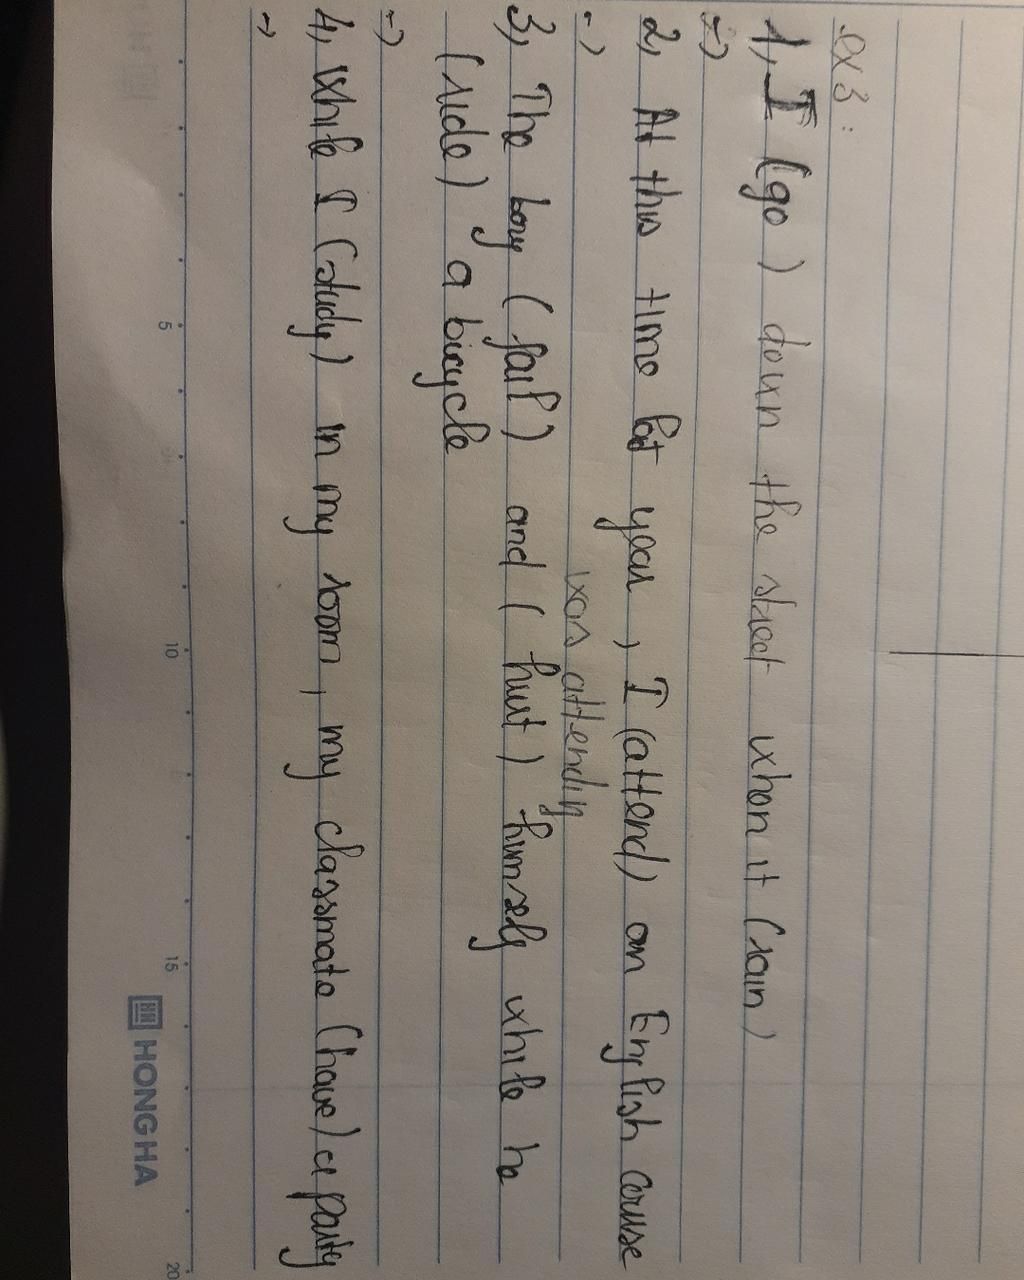 ex 3:
1, I (go) down the street when it (rain)
->
2, At this time last year, I (attend) an English course
-> was attending
3, The boy (fall) and (hurt) himself while he
(ride) a bicycle
->
4, while I (study) in my room, my classmate (have) a party
->
5 10 15 20
HONG HA